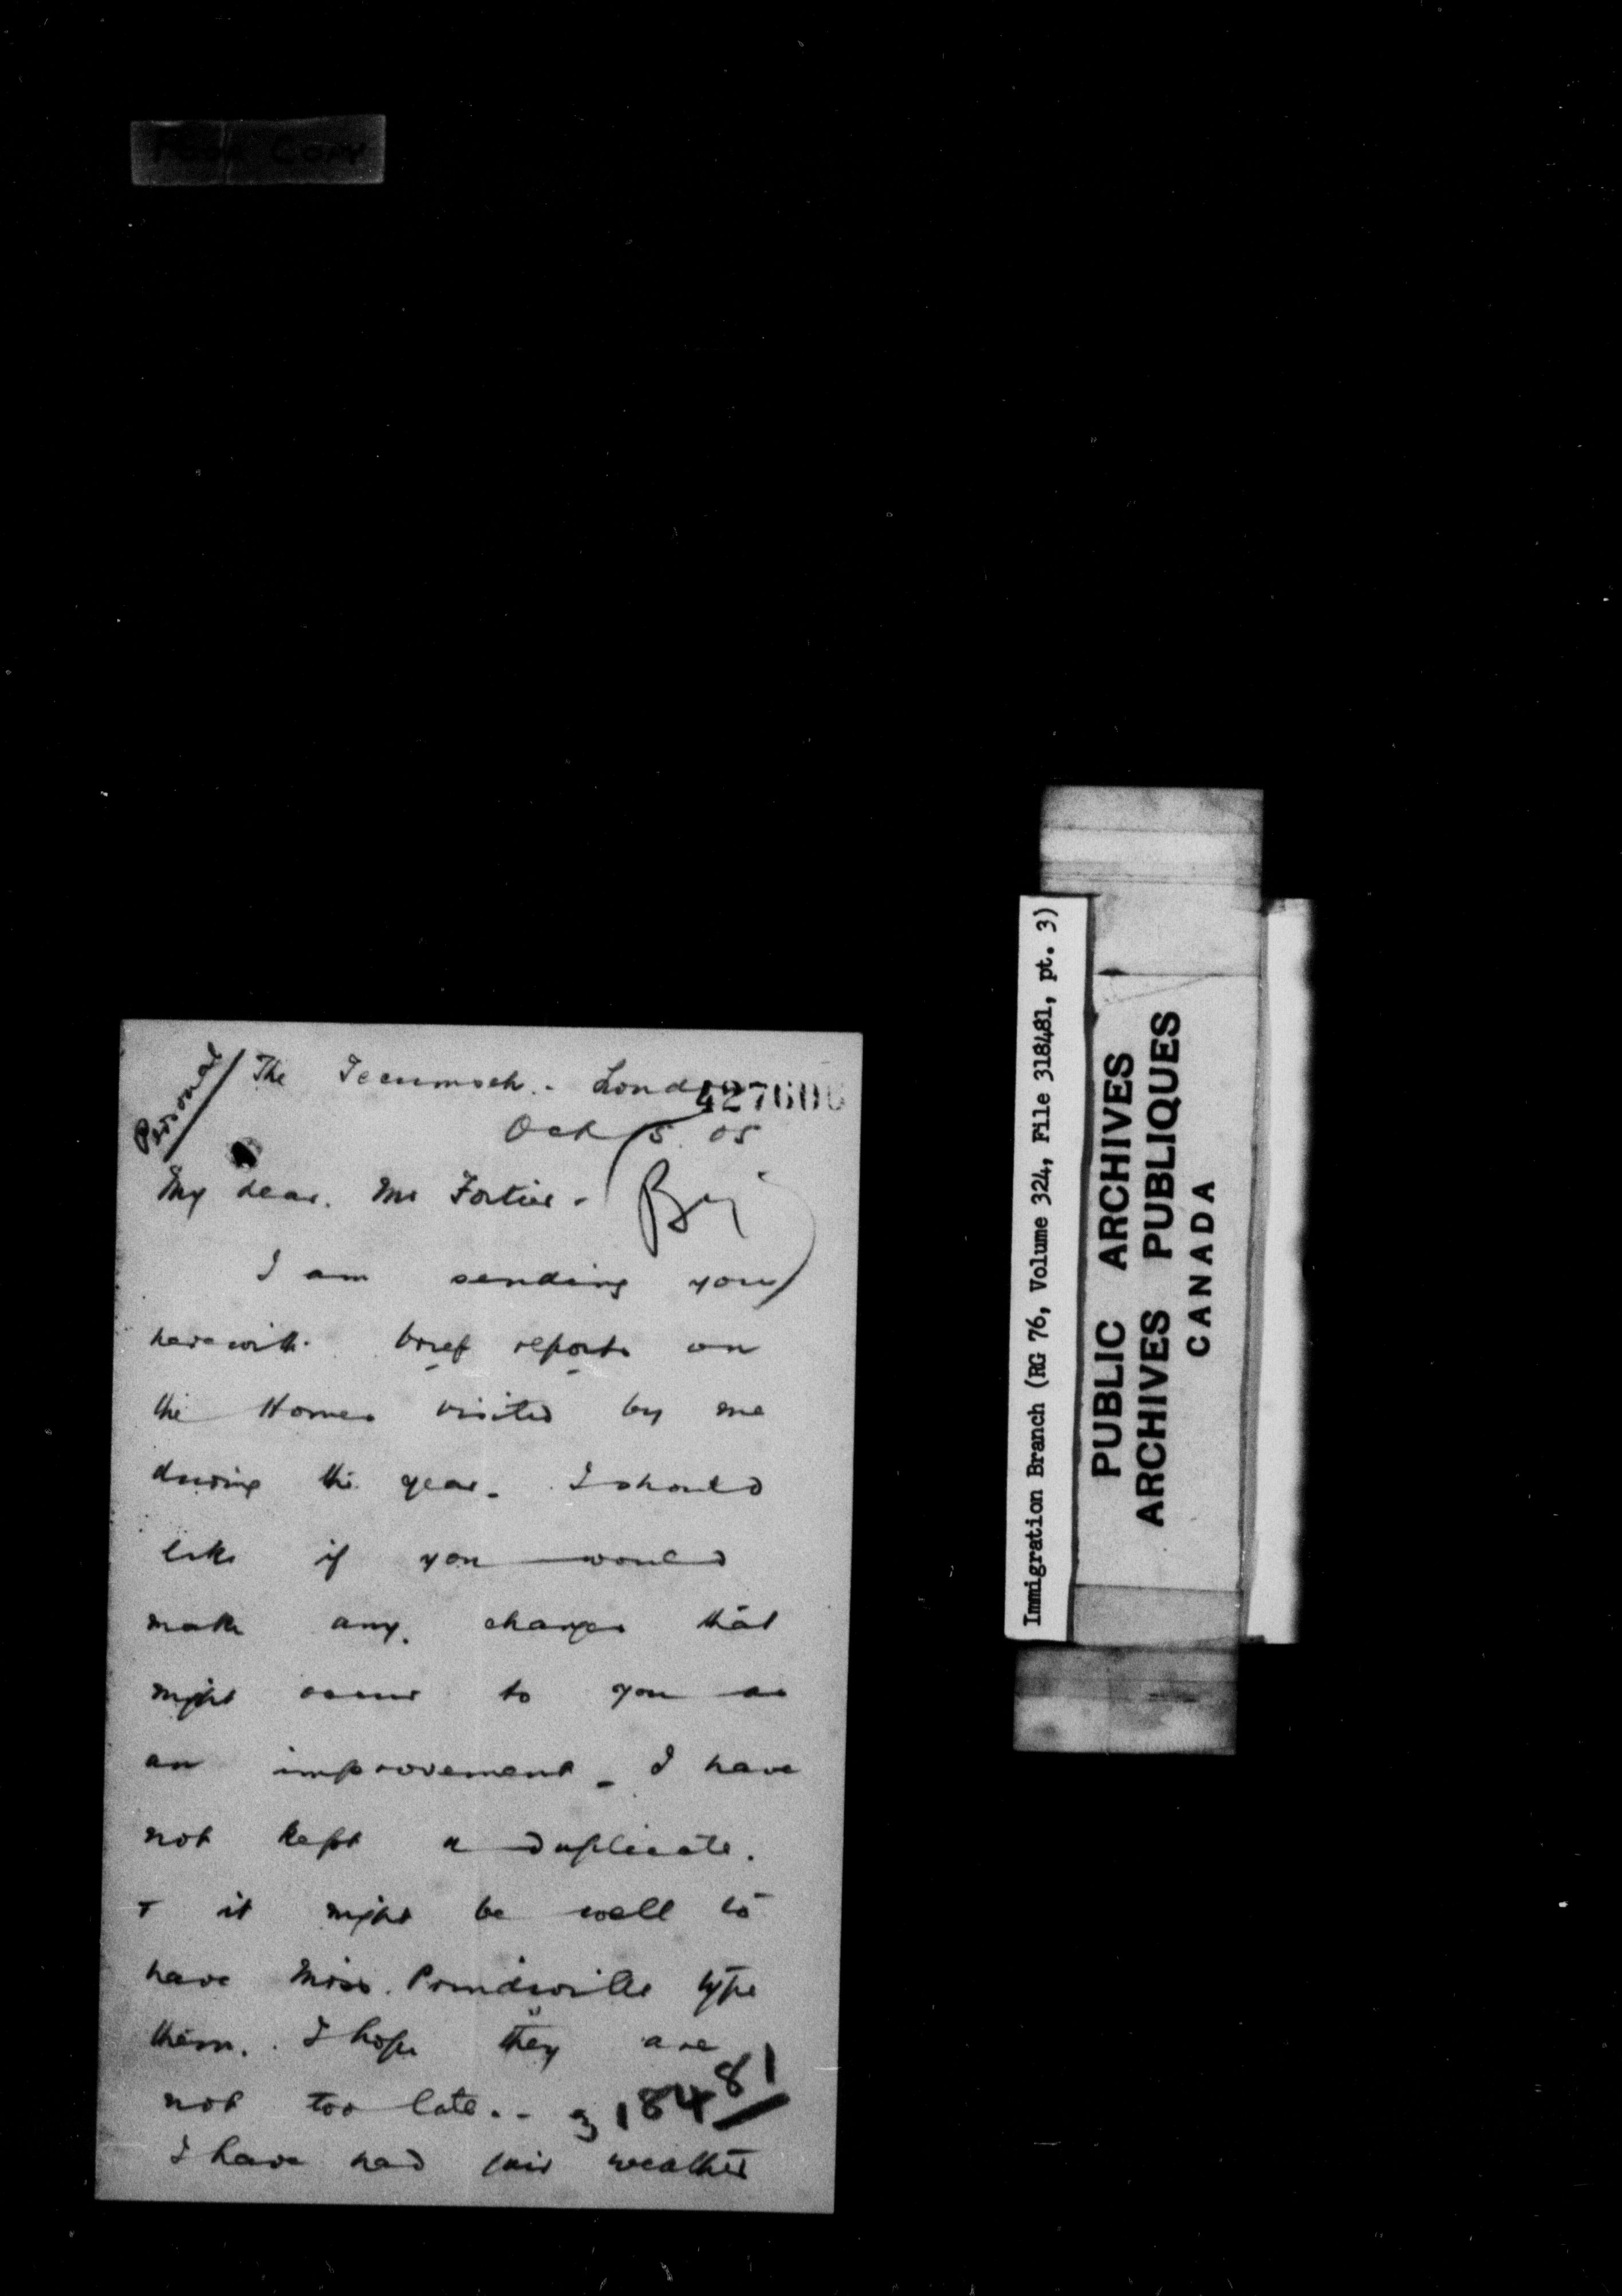 Poor Copy
Personal
The Tecumseh. - London
427606
Oct 5 05
My dear. Mr Fortier -
I am sending you
herewith. brief reports on
the Homes visited by me
during the year. I should
like if you would
make any. changes that
might occur to you as
an improvement - I have
not kept a duplicate.
+ it might be well to
have Miss. type
them. I hope they are
not too late. -
318481
I have had fair weather
Immigration Branch (RG 76, Volume 324, File 318481, pt. 3)
PUBLIC ARCHIVES
ARCHIVES PUBLIQUES
CANADA